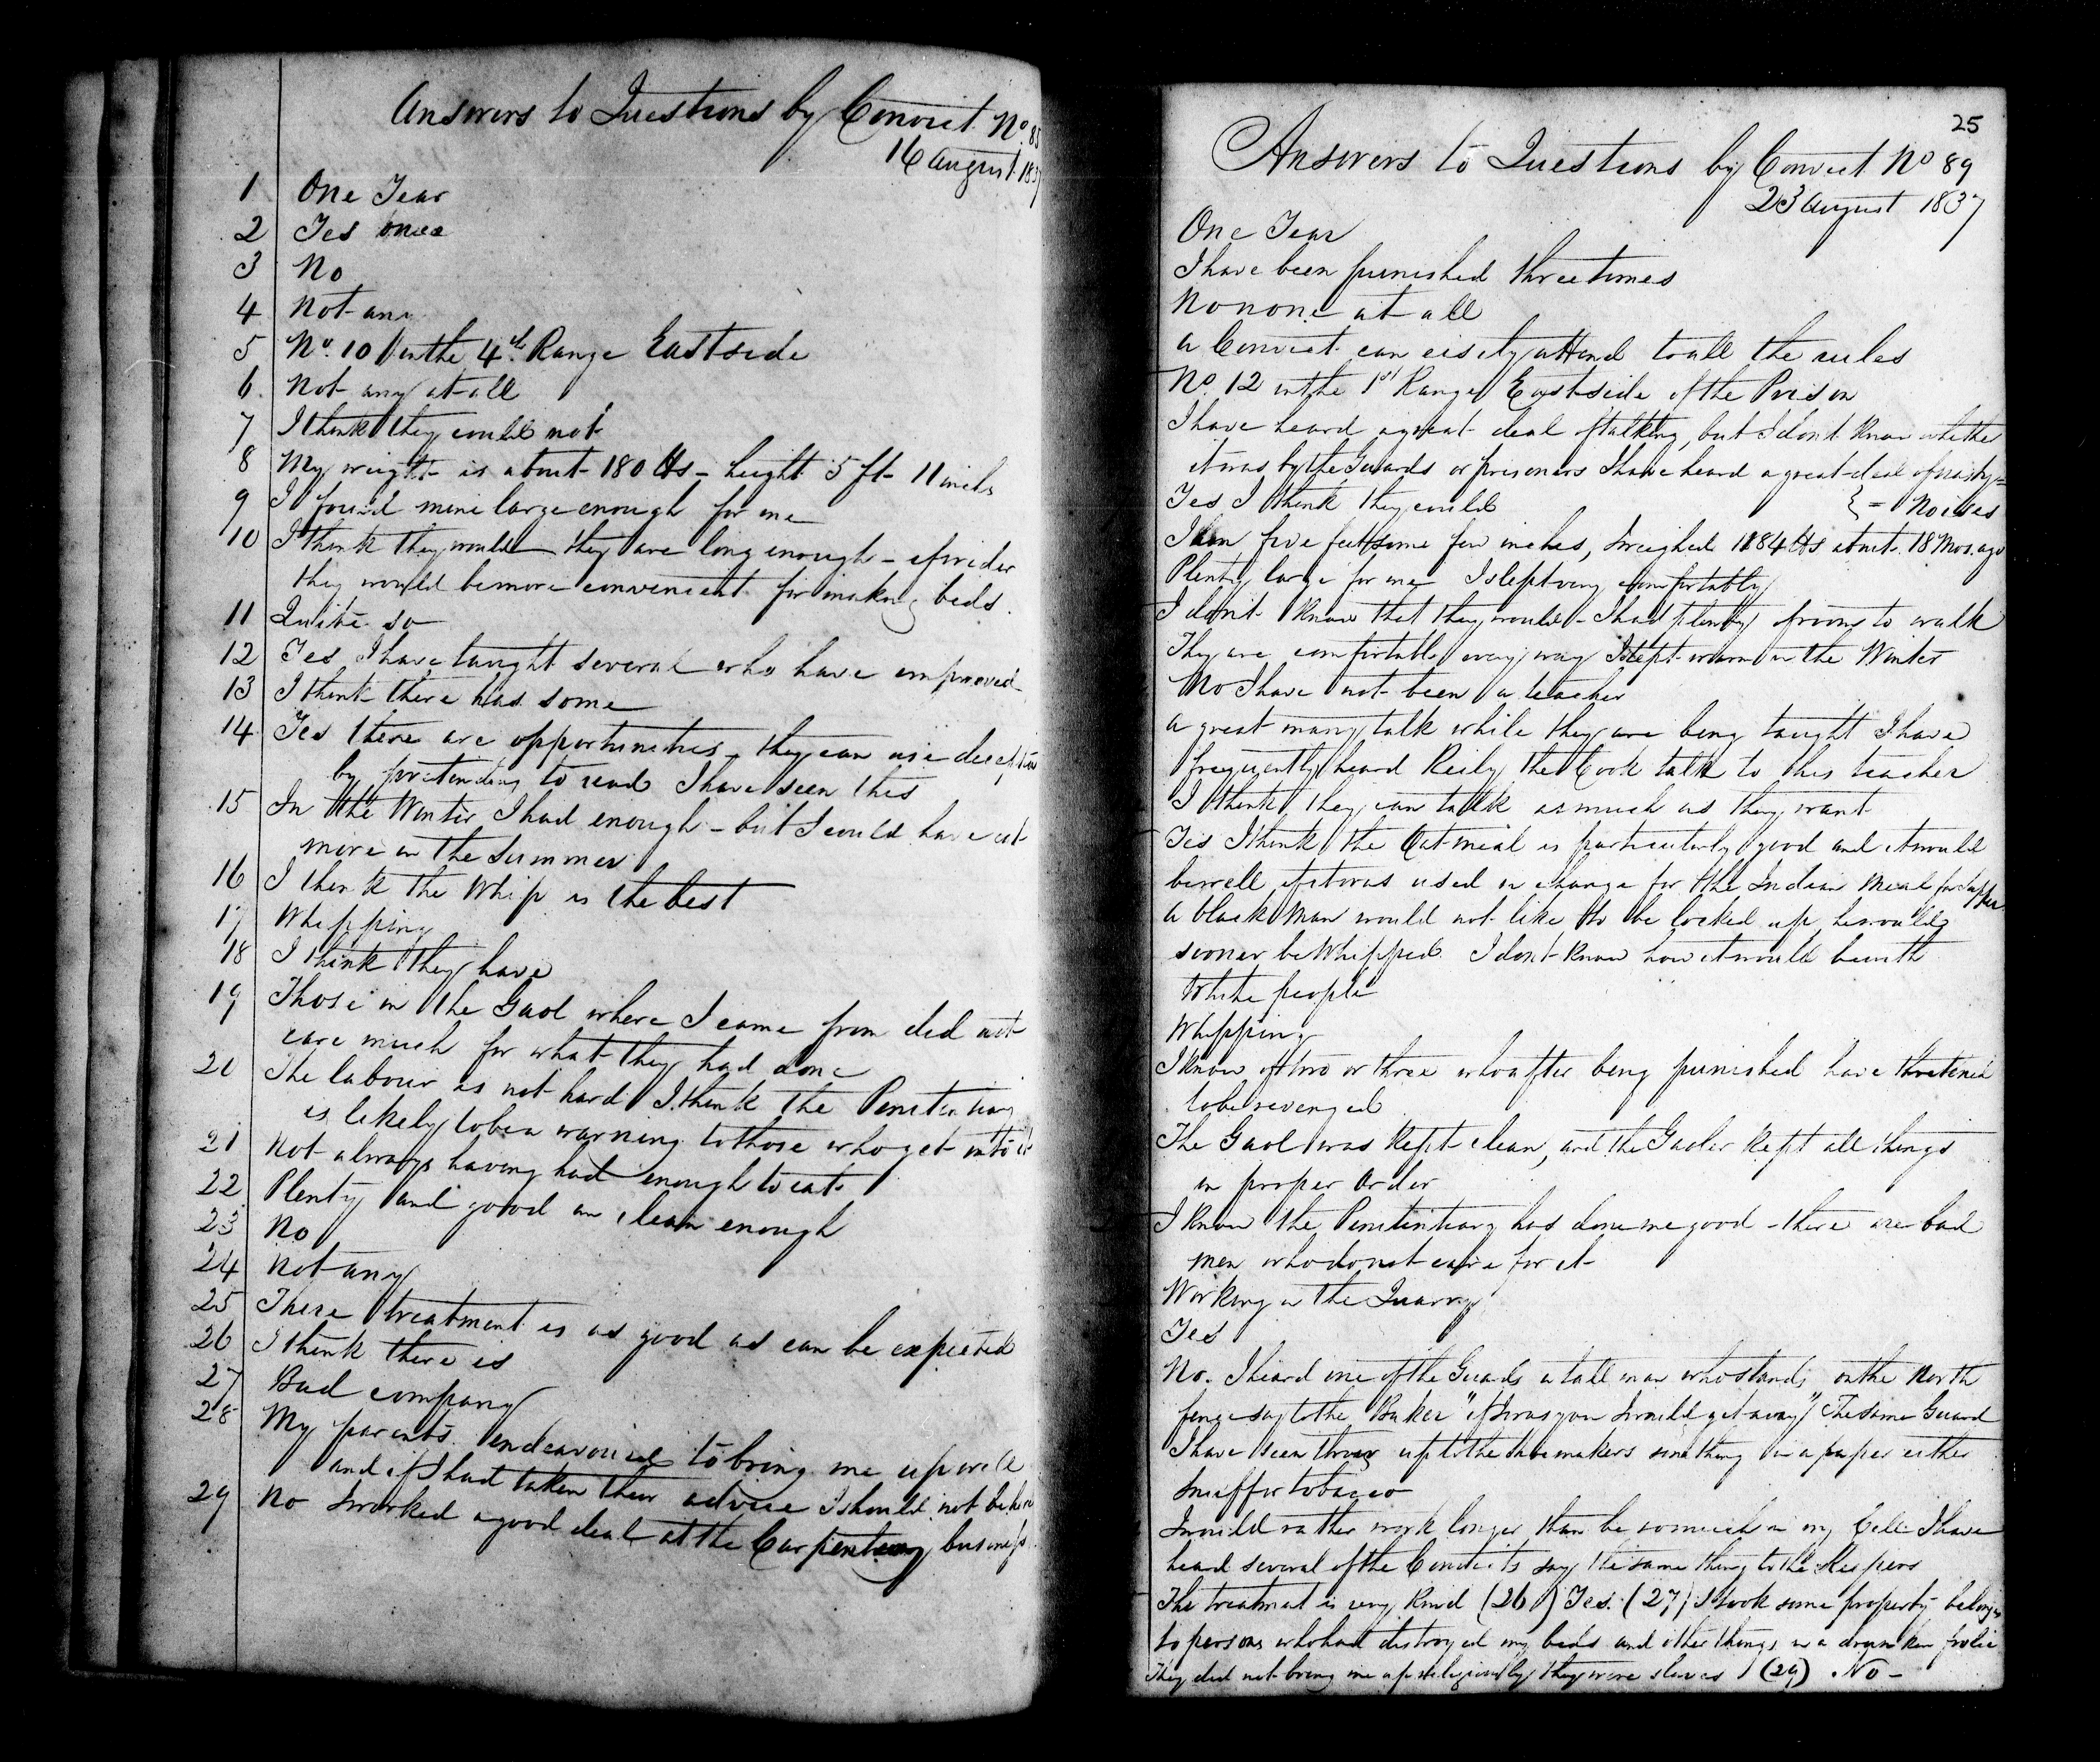 Answers to Questions by Convict No. 85
16 August 1837
1 One Year
2 Yes once
3 No
4 Not any
5 No. 10 in the 4th Range East side
6. Not any at all
7 I think they could not
8 My weight is about 180 lbs - height 5 ft 11 inchs
9 I found mine large enough for me
10 I think they would - they are long enough - if wider
they would be more convenient for making beds.
11 Quite so
12 Yes I have taught several who have improved
13 I think there has some
14 Yes there are opportunities - they can use deception
by pretending to read I have seen this
15 In the Winter I had enough - but I could have eat
more in the Summer
16 I think the Whip is the best
17 Whipping
18 I think they have
19 Those in the Gaol where I came from did not
care much for what they had done
20 The labour is not hard I think the Penitentiary
is likely to be a warning to those who get into it
21 Not always having had enough to eat
22 Plenty and good an clean enough
23 No
24 Not any
25 There treatment is as good as can be expected
26 I think there is
27 Bad company
28 My parents endeavoured to bring me up well
and if I had taken their advice I should not be here
29 No I worked a good deal at the Carpentering business
25
Answers to Questions by Convict No 89
23 August 1837
One Year
I have been punished three times
No none at all
a Convict can eisily attend to all the rules
No. 12 in the 1st Range East side of the Prison
I have heard a great deal of talking, but I dont know whether
it was by the Guards or prisoners I have heard a great deal of nasty =
Yes I think they could } = Noises
I am five feet some few inches, I weighed 184 lbs about 18 Mos. ago
Plenty large for me I slept very comfortably
I dont know that they would - I had plenty of room to walk
They are comfortable every way I slept warm in the Winter
No I have not been a teacher
a great many talk while they are being taught I have
frequently heard Reily the Cook talk to his teacher
I think they can talk as much as they want
Yes I think the Oatmeal is particularly good and it would
be well if it was used in change for the Indian Meal for Supper
A black Man would not like to be locked up, he would
sooner be Whipped. I dont know how it would be with
White people
Whipping
I know of two or three who after being punished have thretened
to be revenged
The Gaol was kept clean, and the Gaoler kept all things
in proper Order
I know the Penitentiary has done me good - there are bad
men who do not care for it
Working in the Quarry
Yes
No. I heard one of the Guards a tall man who stands on the North
fence say to the Baker "if I was you I would get away" The same Guard
I have seen throw up to the shoemakers something in a paper either
Snuff or tobacco
I would rather work longer than be so much in my Cell I have
heard several of the Convicts say the same thing to the Keepers
The treatment is very kind (26) Yes. (27) I took some property belongg
to persons who had distroyed my beds and other things in a drunken frolic
They did not bring me up religiously they were slaves (29) No -